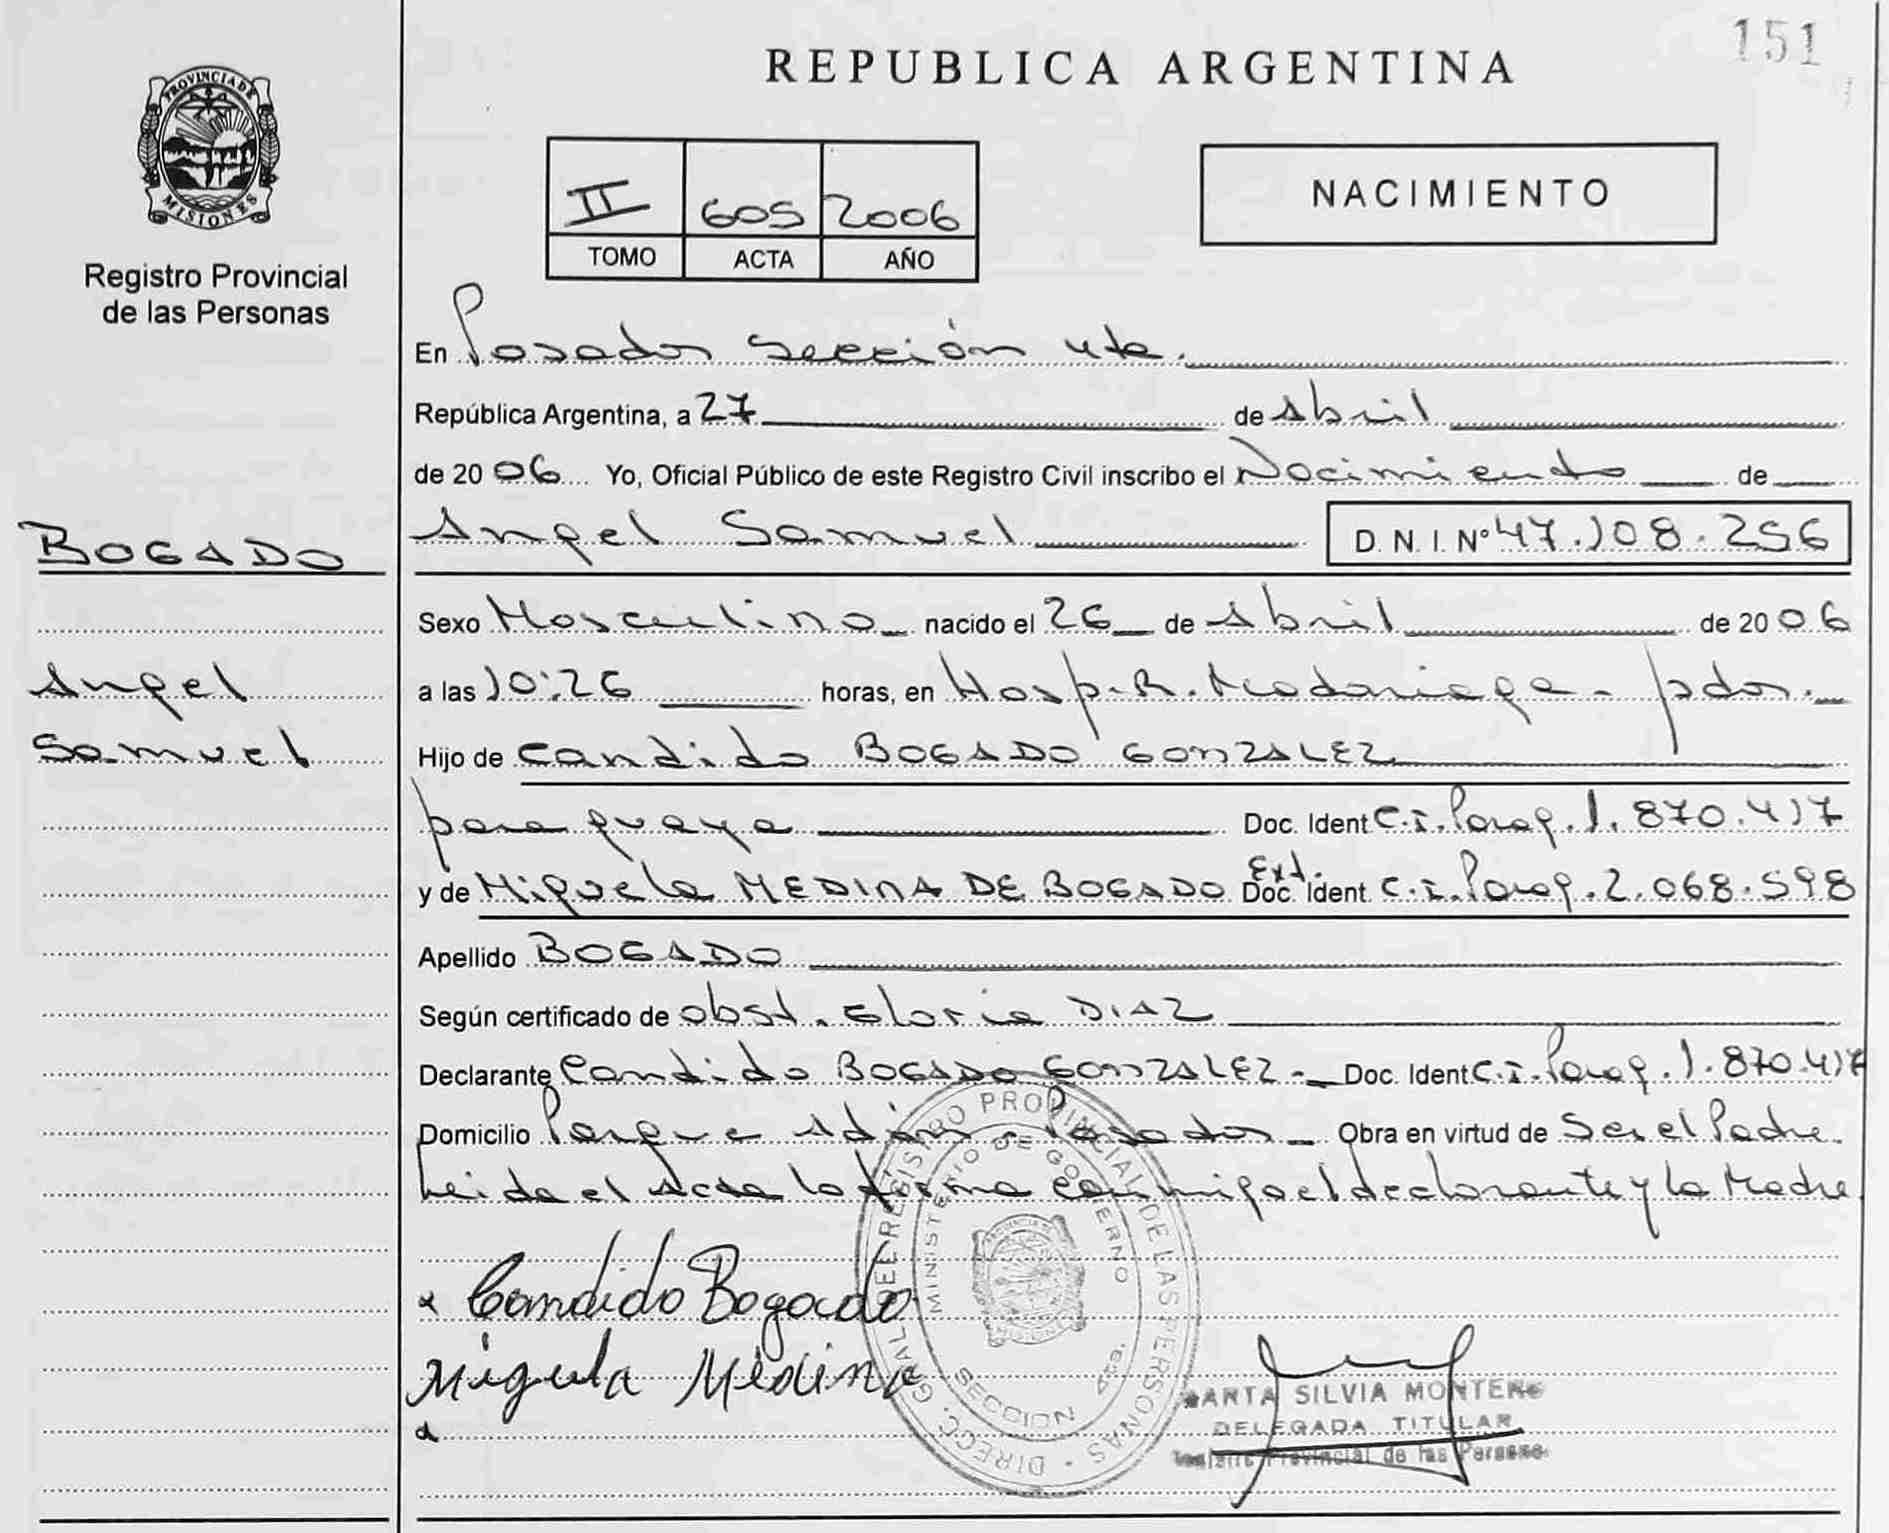 151
REPUBLICA ARGENTINA
PROVINCIA DE MISIONES
Registro Provincial
de las Personas
II 605 2006
TOMO ACTA AÑO
NACIMIENTO
En Posadas Sección 4ta.
República Argentina, a 27 de Abril
de 2006 Yo, Oficial Público de este Registro Civil inscribo el Nacimiento de
BOGADO
Angel Samuel D. N. I. Nº 47.108.256
Sexo Masculino nacido el 26 de Abril de 2006
Angel
a las 10:26 horas, en Hosp. R. Madariaga - pdas.
Samuel
Hijo de Candido BOGADO GONZALEZ
paraguaya Doc. Ident C.I. Parag. 1.870.417
y de Miguela MEDINA DE BOGADO Ext. Doc. Ident. C.I. Parag. 2.068.598
Apellido BOGADO
Según certificado de obst. Gloria DIAZ
Declarante Candido BOGADO GONZALEZ - Doc. Ident C.I. Parag. 1.870.417
Domicilio Parque Adam - Posadas Obra en virtud de Ser el Padre.
Leida el Acta la firma conmigo el declarante y la Madre.
Candido Bogado
Miguela Medina
DIRECC. GRAL DEL REGISTRO PROVINCIAL DE LAS PERSONAS
MINISTERIO DE GOBIERNO
SECCION 4ta.
MARTA SILVIA MONTERO
DELEGADA TITULAR
Registro Provincial de las Personas